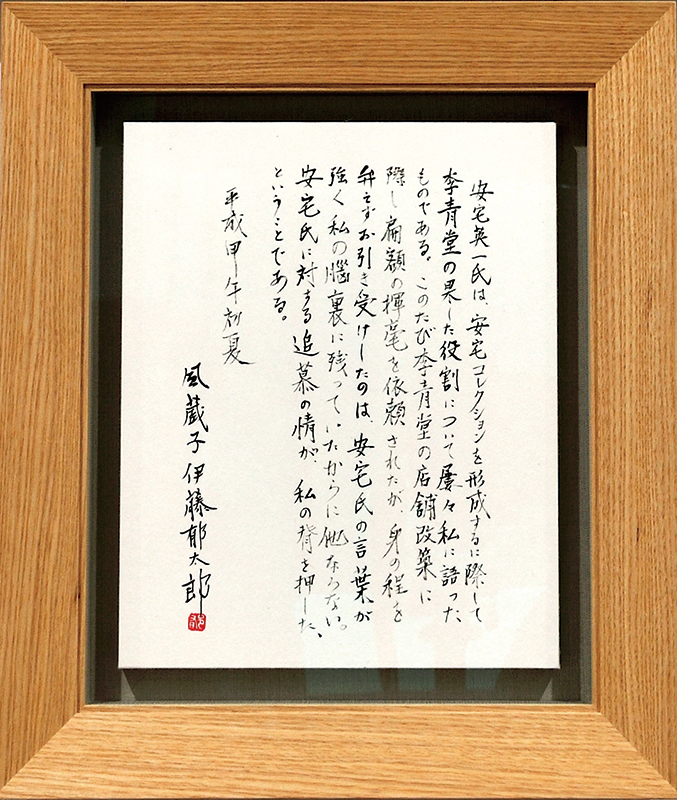 安宅英一氏は、安宅コレクションを形成するに際して
李青堂の果した役割について屡々私に語った
ものである。このたび李青堂の店舗改築に
際し扁額の揮毫を依頼されたが、身の程を
弁えずお引き受けしたのは、安宅氏の言葉が
強く私の脳裏に残っていたからに他ならない。
安宅氏に対する追慕の情が、私の背を押した、
ということである。
平成甲午初夏
風蔵子 伊藤郁太郎